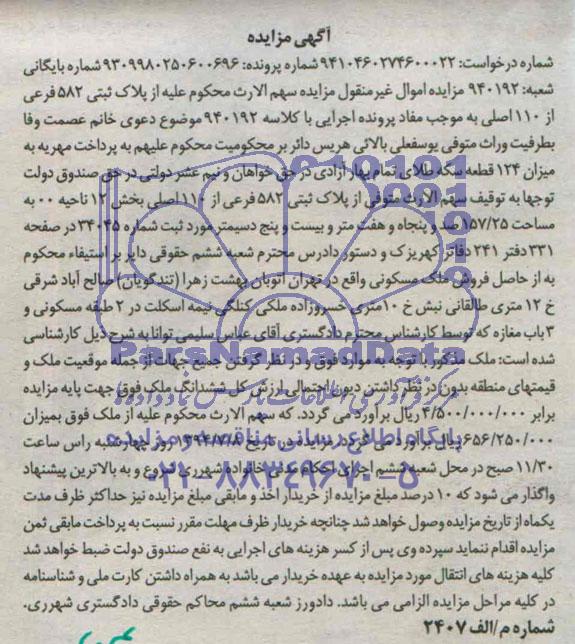 آگهی مزایده
شماره درخواست: ۹۴۱۰۴۶۰۲۷۴۶۰۰۰۲۲ شماره پرونده: ۹۳۰۹۹۸۰۲۵۰۶۰۰۶۹۶ شماره بایگانی
شعبه: ۹۴۰۱۹۲ مزایده اموال غیرمنقول مزایده سهم الارث محکوم علیه از پلاک ثبتی ۵۸۲ فرعی
از ۱۱۰ اصلی به موجب مفاد پرونده اجرایی با کلاسه ۹۴۰۱۹۲ موضوع دعوی خانم عصمت وفا
بطرفیت وراث متوفی یوسفعلی بالائی هریس دائر بر محکومیت محکوم علیهم به پرداخت مهریه به
میزان ۱۲۴ قطعه سکه طلای تمام بهار آزادی در حق خواهان و نیم عشر دولتی در حق صندوق دولت
توجها به توقیف سهم الارث متوفی از پلاک ثبتی ۵۸۲ فرعی از ۱۱۰ اصلی بخش ۱۲ ناحیه ۰۰ به
مساحت ۱۵۷/۲۵ صد و پنجاه و هفت متر و بیست و پنج دسیمتر مورد ثبت شماره ۳۴۰۴۵ در صفحه
۳۳۱ دفتر ۲۴۱ دفاتر کهریزک و دستور دادرس محترم شعبه ششم حقوقی دایر بر استیفاء محکوم
به از حاصل فروش ملک مسکونی واقع در تهران اتوبان بهشت زهرا (تندگویان) صالح آباد شرقی
خ ۱۲ متری طالقانی نبش خ ۱۰ متری خسروزاده ملکی کلنگی نیمه اسکلت در ۲ طبقه مسکونی و
۳ باب مغازه که توسط کارشناس محترم دادگستری آقای عباس سلیمی توانا به شرح ذیل کارشناسی
شده است: ملک مذکور با توجه به موارد فوق و در نظر گرفتن جمیع جهات از جمله موقعیت ملک و
قیمتهای منطقه بدون در نظر داشتن دیون احتمالی ارزش کل ششدانگ ملک فوق جهت پایه مزایده
برابر ۴/۵۰۰/۰۰۰/۰۰۰ ریال برآورد می گردد. که سهم الارث محکوم علیه از ملک فوق بمیزان
۶۵۶/۲۵۰/۰۰۰ ریال برآورد می گردد. مزایده در تاریخ ۱۳۹۴/۷/۸ روز چهارشنبه راس ساعت
۱۱/۳۰ صبح در محل شعبه ششم اجرای احکام مدنی خانواده شهرری شروع و به بالاترین پیشنهاد
واگذار می شود که ۱۰ درصد مبلغ مزایده از خریدار اخذ و مابقی مبلغ مزایده نیز حداکثر ظرف مدت
یکماه از تاریخ مزایده وصول خواهد شد چنانچه خریدار ظرف مهلت مقرر نسبت به پرداخت مابقی ثمن
مزایده اقدام ننماید سپرده وی پس از کسر هزینه های اجرایی به نفع صندوق دولت ضبط خواهد شد
کلیه هزینه های انتقال مورد مزایده به عهده خریدار می باشد به همراه داشتن کارت ملی و شناسنامه
در کلیه مراحل مزایده الزامی می باشد. دادورز شعبه ششم محاکم حقوقی دادگستری شهرری.
شماره م/الف ۲۴۰۷
ParsNamadData
پایگاه اطلاع رسانی مناقصه و مزایده
۰۲۱-۸۸۳۴۹۶۷۰-۵